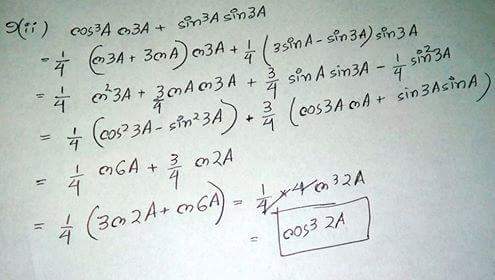 9(ii) cos³A cn3A + sin³A sin3A
= 1/4 (cn3A + 3cnA) cn3A + 1/4 (3sinA - sin3A) sin3A
= 1/4 cn²3A + 3/4 cnA cn3A + 3/4 sinA sin3A - 1/4 sin²3A
= 1/4 (cos²3A - sin²3A) + 3/4 (cos3A cnA + sin3A sinA)
= 1/4 cn6A + 3/4 cn2A
= 1/4 (3cn2A + cn6A) = 1/4 × 4 cn³2A
= cos³ 2A